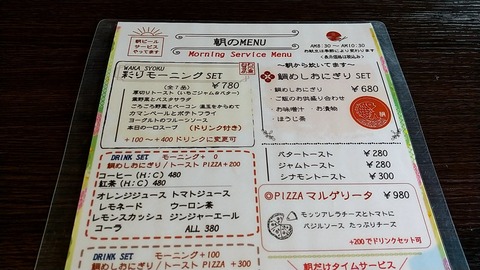 朝のMENU
Morning Service Menu
朝ビール
サービス
やってます
AM8:30 ～ AM10:30
WAKA SYOKU
彩りモーニング SET
¥780
(全7品)
厚切りトースト(いちごジャム&バター)
葉野菜とパスタサラダ
ごろごろ野菜とベーコン 温玉をからめて
カマンベールとポテトフライ
ヨーグルトのフルーツソース
本日の一口スープ (ドリンク付き)
+100～+400ドリンクに変更可
DRINK SET モーニング+ 0
鯛めしおにぎり/トースト PIZZA+200
コーヒー(H:C) 480
紅茶(H:C) 480
オレンジジュース トマトジュース
レモネード ウーロン茶
レモンスカッシュ ジンジャーエール
コーラ ALL 380
DRINK SET モーニング+100
鯛めしおにぎり/トースト PIZZA +300
～朝から炊いてます～
鯛めしおにぎり SET
¥680
鯛めしおにぎり
・ご飯のお供盛り合わせ
お味噌汁 お漬物
ほうじ茶
バタートースト ¥280
ジャムトースト ¥280
シナモントースト ¥300
◎PIZZA マルゲリータ ¥980
モッツァレラチーズとトマトに
バジルソース たっぷりチーズ
+200でドリンクセット可
朝だけタイムサービス